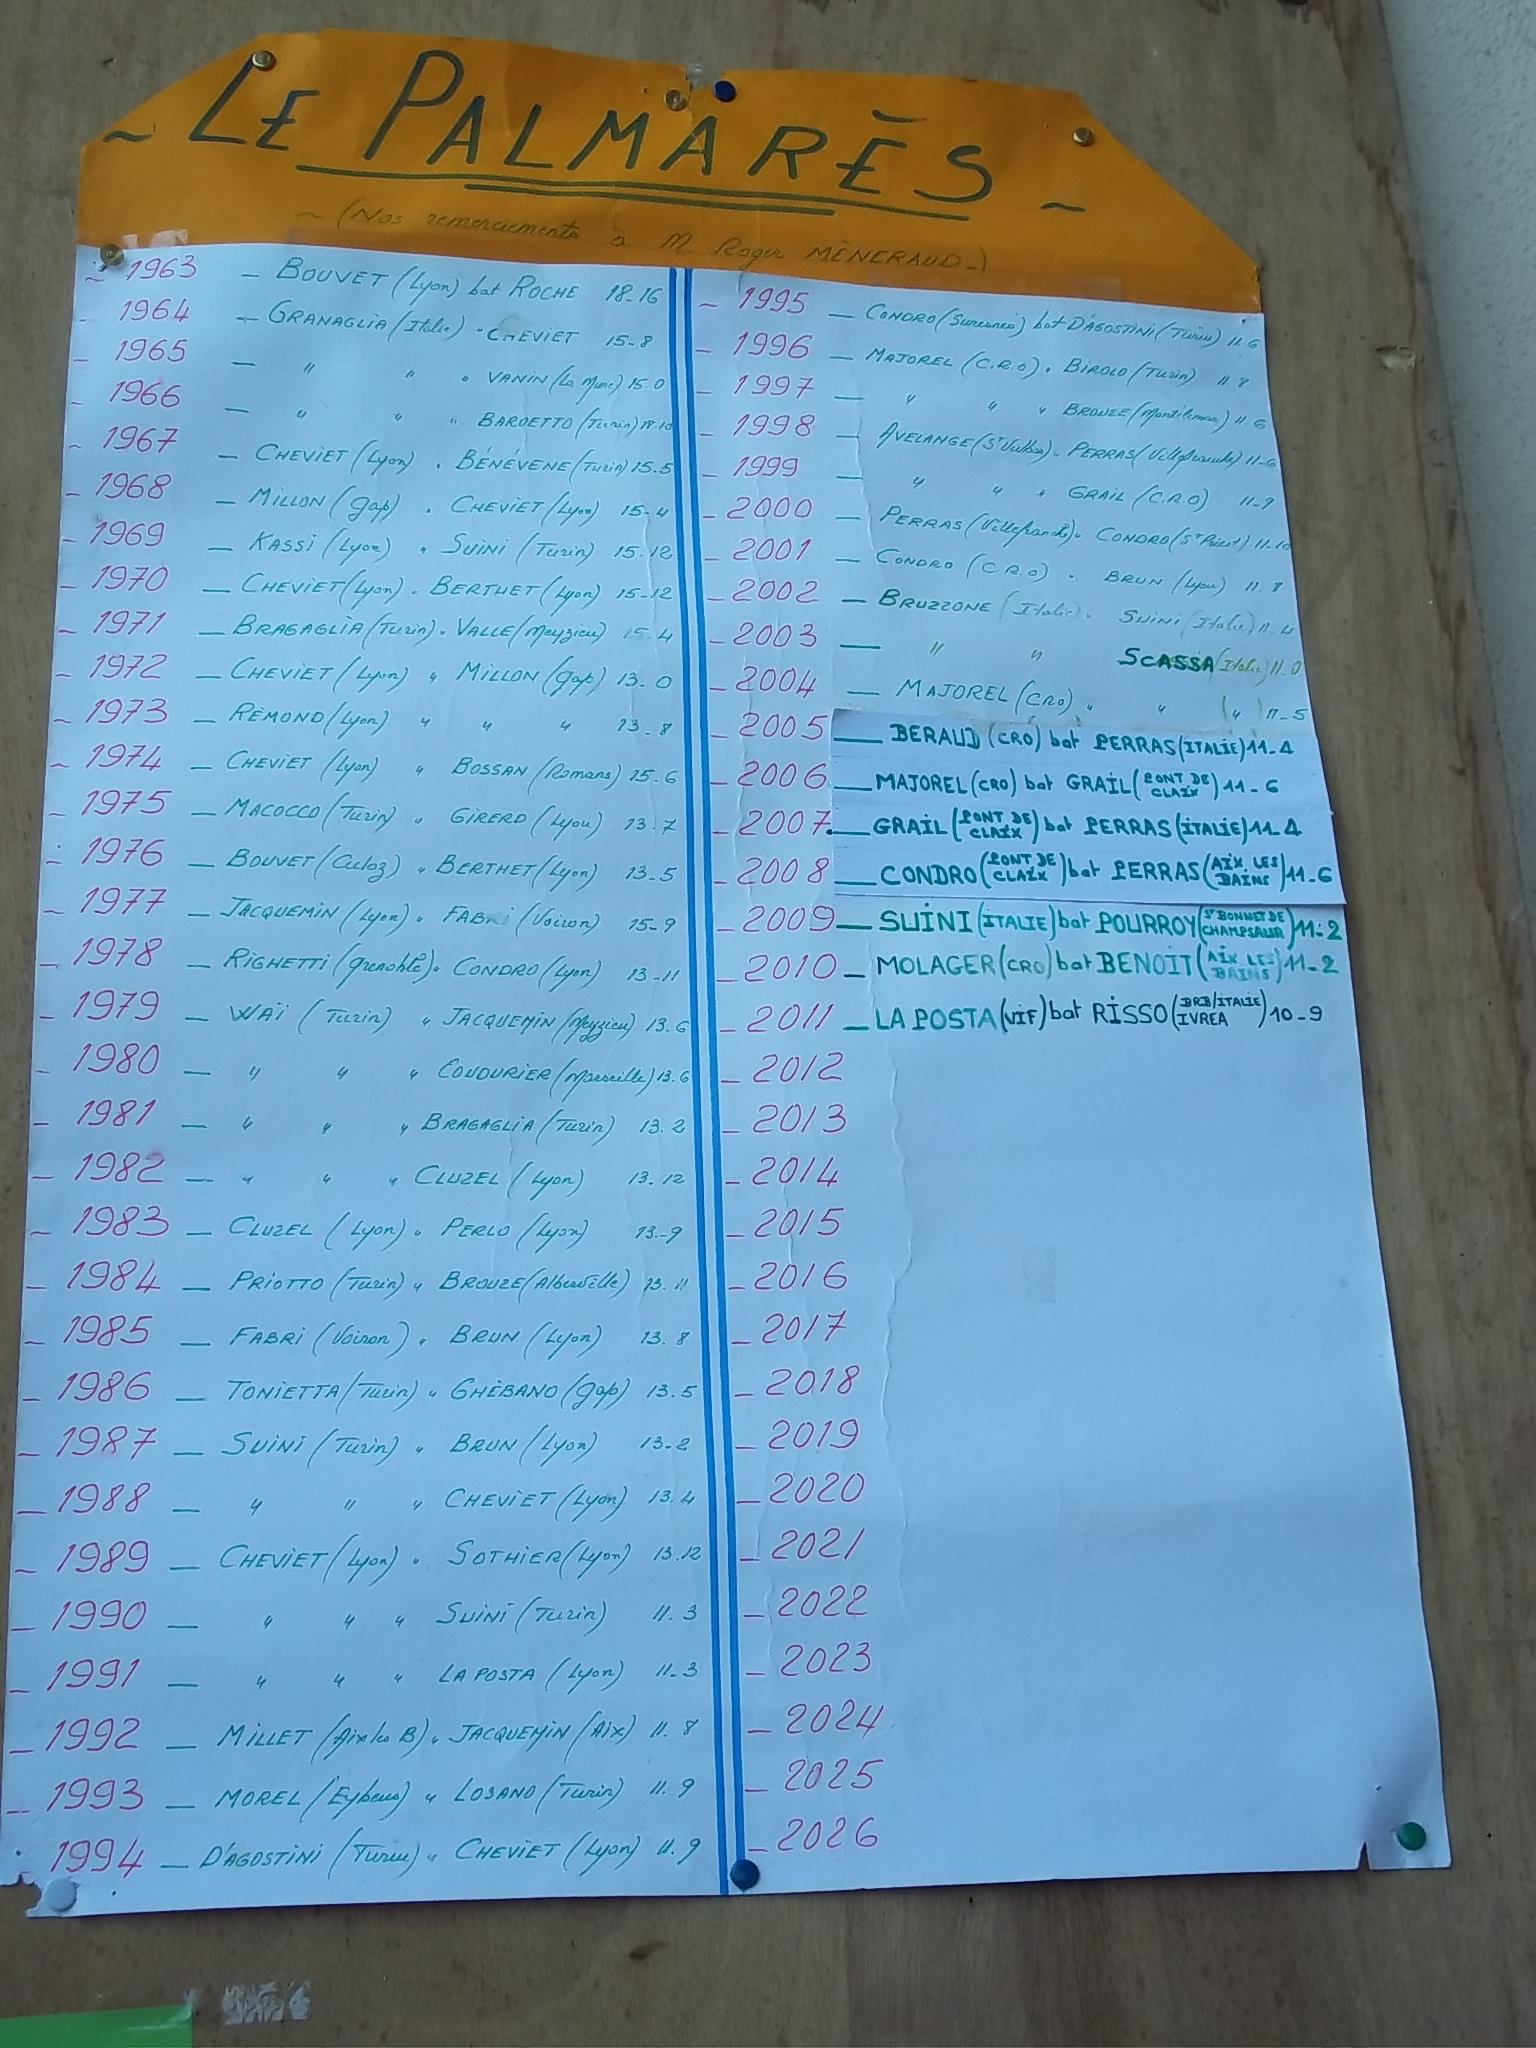 ~ LE PALMARÈS ~
~ (Nos remerciements à M. Roger MÈNERAUD -)
~ 1963 - BOUVET (Lyon) bat ROCHE 18-16
- 1964 - GRANAGLIA (Italie) " CHEVIET 15-8
- 1965 - " " " VANIN (La Mure) 15-0
- 1966 - " " " BARDETTO (Turin) 18-10
- 1967 - CHEVIET (Lyon) " BÉNÉVENE (Turin) 15-5
- 1968 - MILLON (Gap) " CHEVIET (Lyon) 15-4
- 1969 - KASSI (Lyon) " SUINI (Turin) 15-12
- 1970 - CHEVIET (Lyon) " BERTHET (Lyon) 15-12
- 1971 - BRAGAGLIA (Turin) " VALLE (Meyzieu) 15-4
- 1972 - CHEVIET (Lyon) " MILLON (Gap) 13-0
- 1973 - RÉMOND (Lyon) " " " 13-8
- 1974 - CHEVIET (Lyon) " BOSSAN (Romans) 15-6
- 1975 - MACOCCO (Turin) " GIRERD (Lyon) 13-7
- 1976 - BOUVET (Culoz) " BERTHET (Lyon) 13-5
- 1977 - JACQUEMIN (Lyon) " FABRI (Voiron) 15-9
- 1978 - RIGHETTI (Grenoble) " CONDRO (Lyon) 13-11
- 1979 - WAÏ (Turin) " JACQUEMIN (Meyzieu) 13-6
- 1980 - " " " COUDURIER (Marseille) 13-6
- 1981 - " " " BRAGAGLIA (Turin) 13-2
- 1982 - " " " CLUZEL (Lyon) 13-12
- 1983 - CLUZEL (Lyon) " PERLO (Lyon) 13-9
- 1984 - PRIOTTO (Turin) " BROUZE (Albertville) 13-11
- 1985 - FABRI (Voiron) " BRUN (Lyon) 13-8
- 1986 - TONIETTA (Turin) " GHÉBANO (Gap) 13-5
- 1987 - SUINI (Turin) " BRUN (Lyon) 13-2
- 1988 - " " " CHEVIET (Lyon) 13-4
- 1989 - CHEVIET (Lyon) " SOTHIER (Lyon) 13-12
- 1990 - " " " SUINI (Turin) 11-3
- 1991 - " " " LA POSTA (Lyon) 11-3
- 1992 - MILLET (Aix les B) " JACQUEMIN (Aix) 11-8
- 1993 - MOREL (Eybens) " LOSANO (Turin) 11-9
- 1994 - D'AGOSTINI (Turin) " CHEVIET (Lyon) 11-9
- 1995 - CONDRO (Suresnes) bat D'AGOSTINI (Turin) 11-6
- 1996 - MAJOREL (C.R.O) " BIROLO (Turin) 11-8
- 1997 - " " " BROUZE (Montélimar) 11-6
- 1998 - AVELANGE (St Vulbas) " PERRAS (Villefranche) 11-6
- 1999 - " " " GRAIL (C.R.O) 11-9
- 2000 - PERRAS (Villefranche) " CONDRO (St Priest) 11-10
- 2001 - CONDRO (C.R.O) " BRUN (Lyon) 11-8
- 2002 - BRUZZONE (Italie) " SUINI (Italie) 11-4
- 2003 - " " SCASSA (Italie) 11-0
- 2004 - MAJOREL (CRO) " " ( " ) 11-5
- 2005 - BERAUD (CRO) bat PERRAS (ITALIE) 11-4
- 2006 - MAJOREL (CRO) bat GRAIL (PONT DE CLAIX) 11-6
- 2007 - GRAIL (PONT DE CLAIX) bat PERRAS (ITALIE) 11-4
- 2008 - CONDRO (PONT DE CLAIX) bat PERRAS (AIX LES BAINS) 11-6
- 2009 - SUINI (ITALIE) bat POURROY (ST BONNET DE CHAMPSAUR) 11-2
- 2010 - MOLAGER (CRO) bat BENOIT (AIX LES BAINS) 11-2
- 2011 - LA POSTA (VIF) bat RISSO (BRB/ITALIE IVREA) 10-9
- 2012
- 2013
- 2014
- 2015
- 2016
- 2017
- 2018
- 2019
- 2020
- 2021
- 2022
- 2023
- 2024
- 2025
- 2026